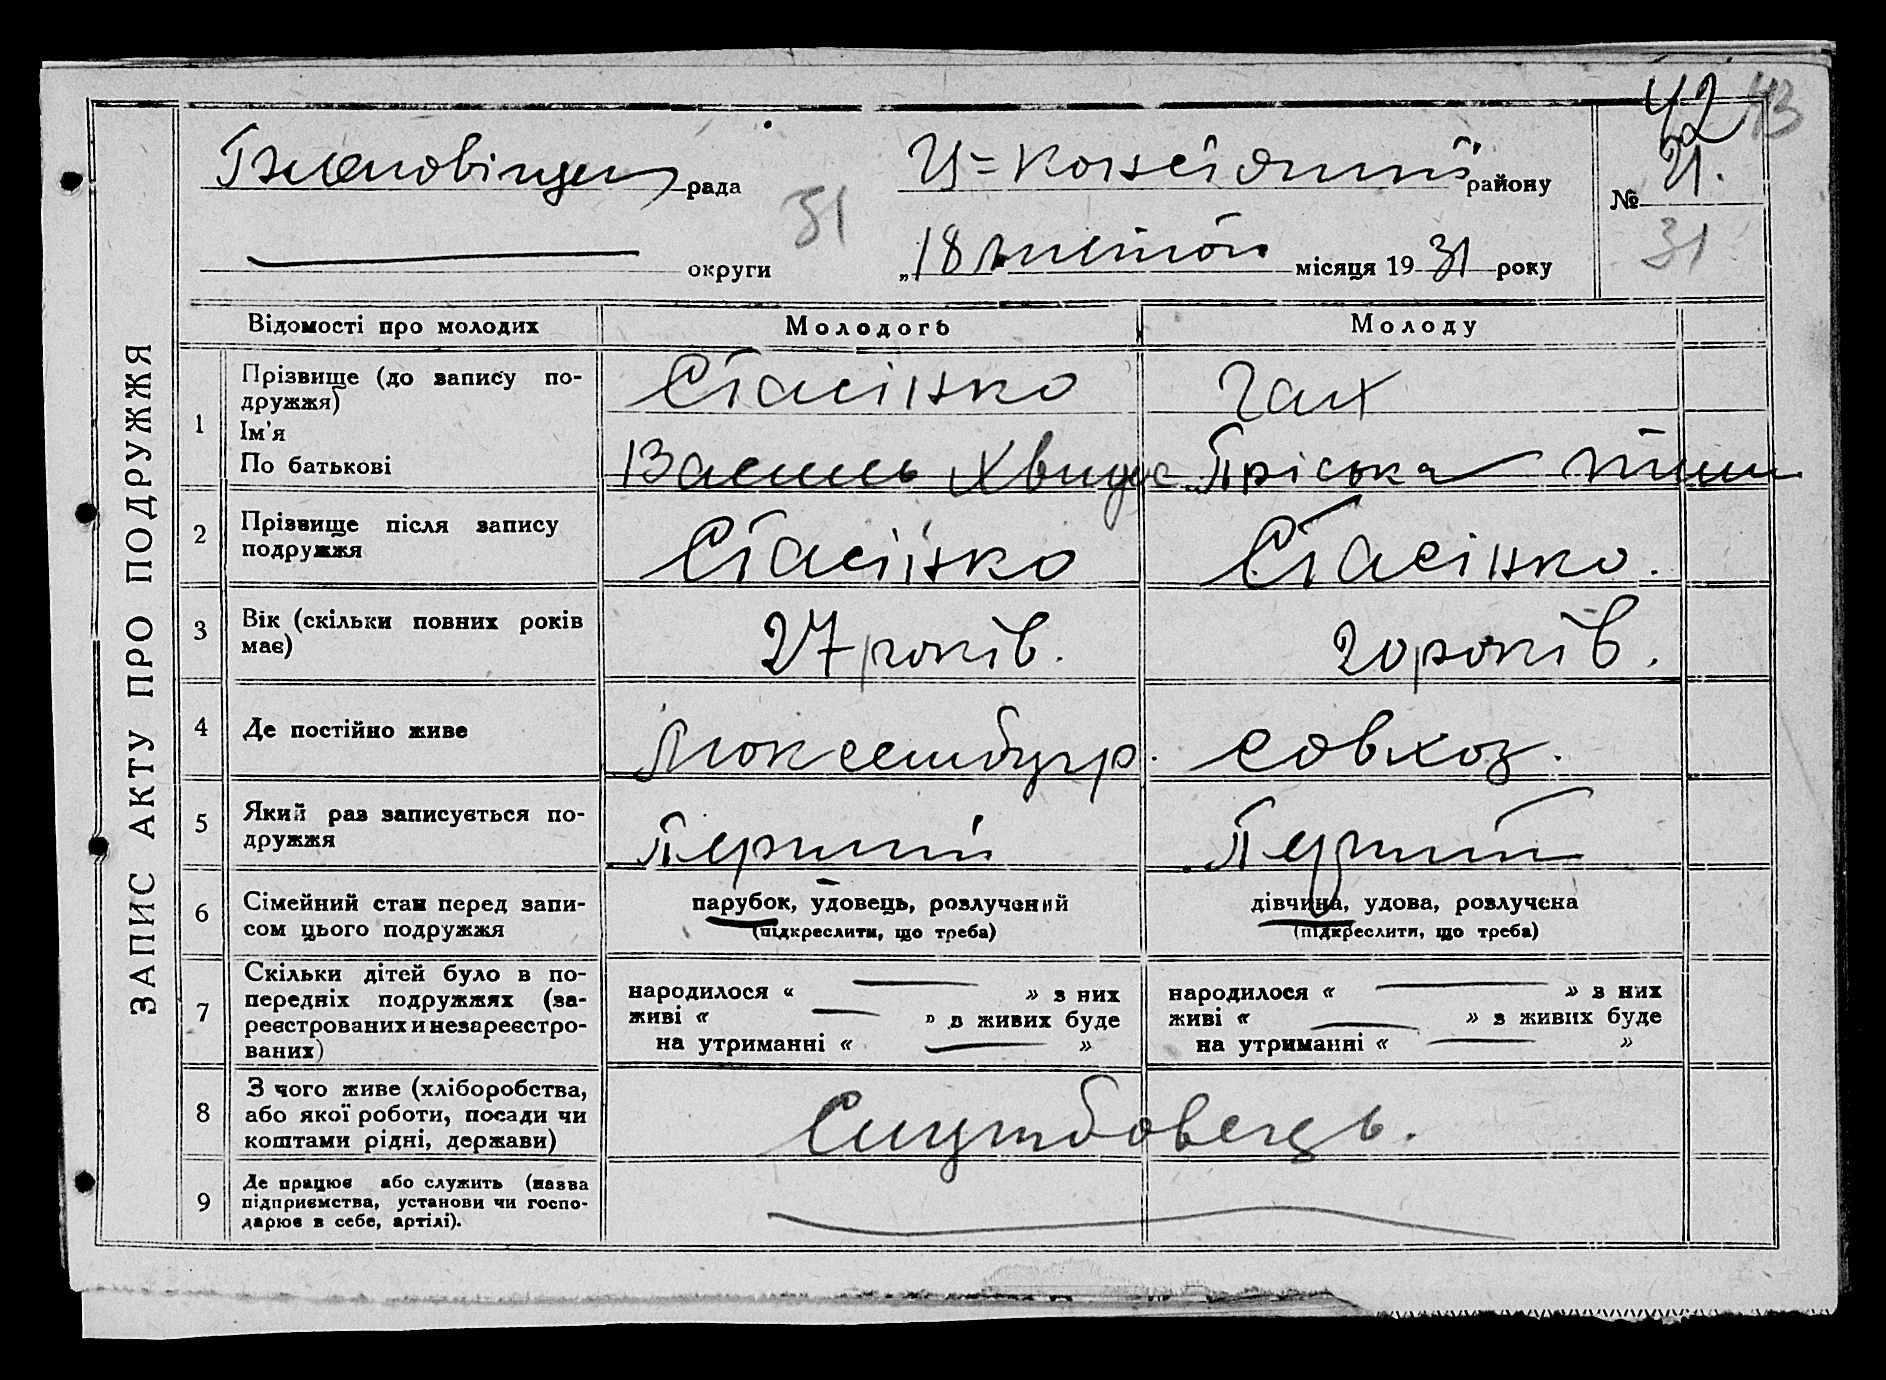 42 43
рада
района
31
№ 21.
31
округи
„18 лютого місяця 1931 року
ЗАПИС АКТУ ПРО ПОДРУЖЖЯ
Відомості про молодих
Молодого
Молоду
1
Прізвище (до запису по-
дружжя)
Ім'я
По батькові
Стасінко
Гах
Василь Хвидос
Пріська
2
Прізвище після запису
подружжя
Стасінко
Стасінко.
3
Вік (скільки повних років
має)
27 років.
20 років.
4
Де постійно живе
Люксембург.
совхоз.
5
Який раз записується по-
дружжя
Перший
Перший
6
Сімейний стан перед запи-
сом цього подружжя
парубок, удовець, розлучений
(підкреслити, що треба)
дівчина, удова, розлучена
(підкреслити, що треба)
7
Скільки дітей було в по-
передніх подружжях (за-
реєстрованих и незареєстро-
ваних)
народилося « — » з них
живі « — » з живих буде
на утриманні « — »
народилося « — » з них
живі « — » з живих буде
на утриманні « — »
8
З чого живе (хліборобства,
або якої роботи, посади чи
коштами рідні, держави)
Службовець.
9
Де працює або служить (назва
підприємства, установи чи госпо-
дарює в себе, артілі).